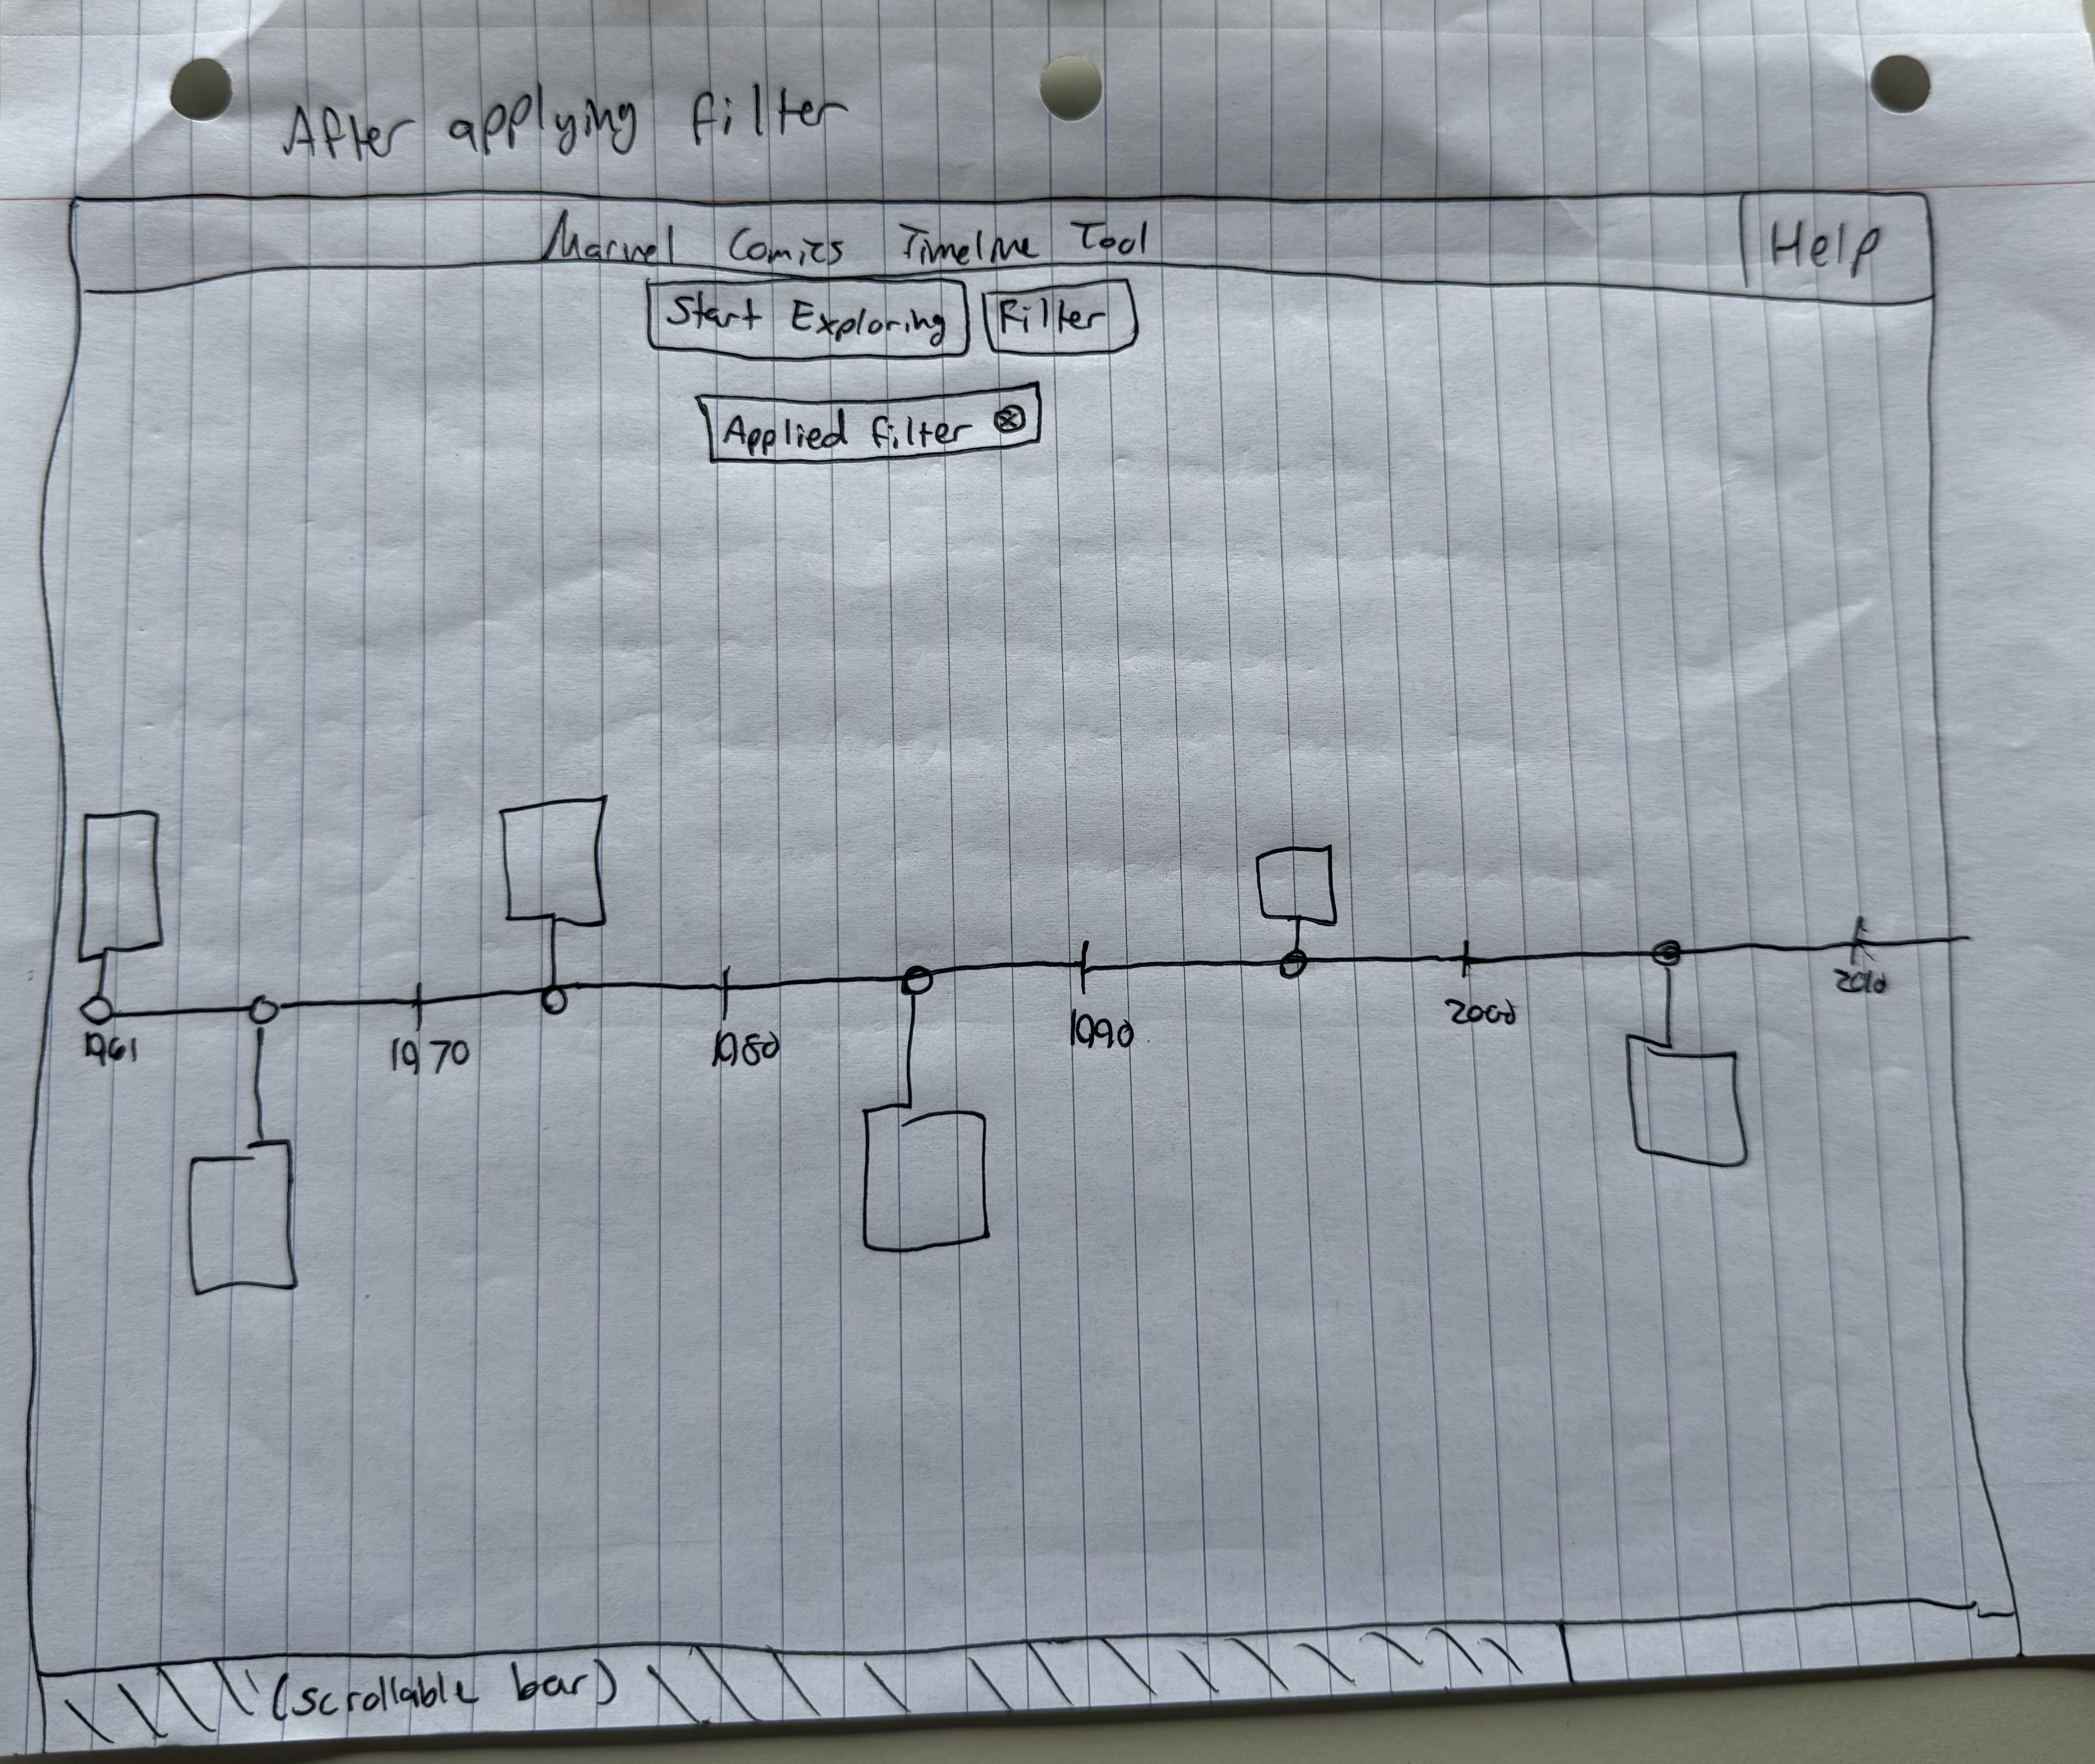 After applying filter
Marvel Comics Timeline Tool Help
Start Exploring Filter
Applied filter ⊗
1961 1970 1980 1990 2000 2010
(scrollable bar)